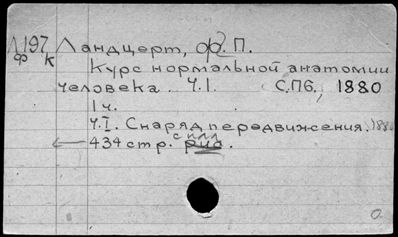 Л197 Ландцерт, Ф. П.
Ф К
Курс нормальной анатомии
человека. Ч.I. С.Пб., 1880
1 ч.
Ч.I. Снаряд передвижения. 1880
с илл
434 стр. рис.